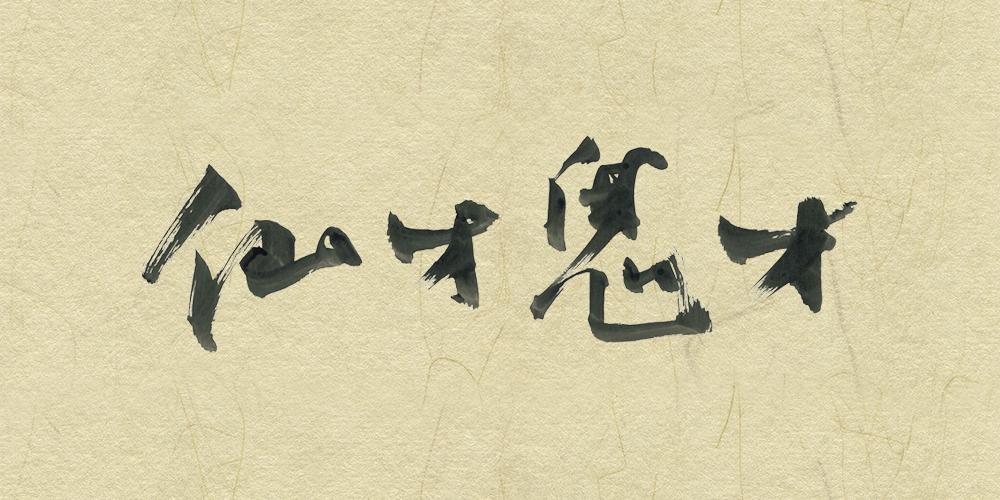 仙才鬼才